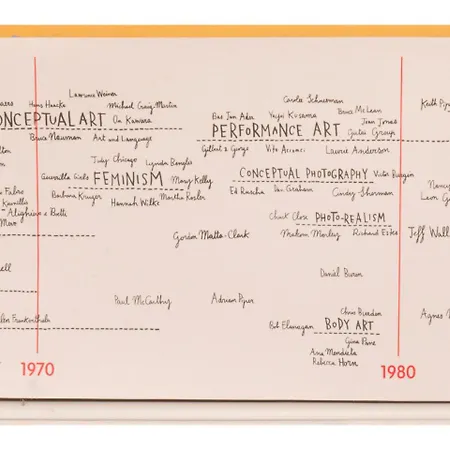 Lawrence Weiner
Hans Haacke
Michael Craig-Martin
CONCEPTUAL ART On Kawara
Bruce Nauman Art and Language
Judy Chicago Lynda Benglis
Guerrilla Girls FEMINISM Mary Kelly
Barbara Kruger Hannah Wilke Martha Rosler
Alighiero e Boetti
Gordon Matta-Clark
Paul McCarthy Adrian Piper
Helen Frankenthaler
1970
Carolee Schneeman
Bas Jan Ader Yayoi Kusama Bruce McLean
Joan Jonas
PERFORMANCE ART Gutai Group
Gilbert & George Vito Acconci Laurie Anderson
CONCEPTUAL PHOTOGRAPHY Victor Burgin
Ed Ruscha Dan Graham Cindy Sherman
Chuck Close PHOTO-REALISM
Malcom Morley Richard Estes
Daniel Buren
Chris Burden
Bob Flanagan BODY ART
Gina Pane
Ana Mendieta
Rebecca Horn
1980
Keith
Nancy
Leon G
Jeff Wall
Agnes